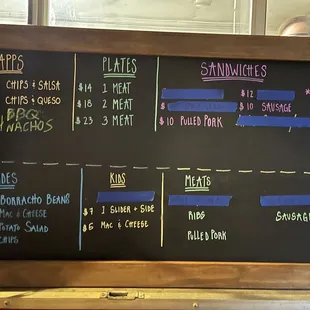 APPS
CHIPS & SALSA
CHIPS & QUESO
BBQ
NACHOS
PLATES
$14 1 MEAT
$18 2 MEAT
$23 3 MEAT
SANDWICHES
$10 PULLED PORK
$12
$10 SAUSAGE
DES
BORRACHO BEANS
MAC & CHEESE
POTATO SALAD
CHIPS
KIDS
$7 1 SLIDER + SIDE
$5 MAC & CHEESE
MEATS
RIBS
PULLED PORK
SAUSAG